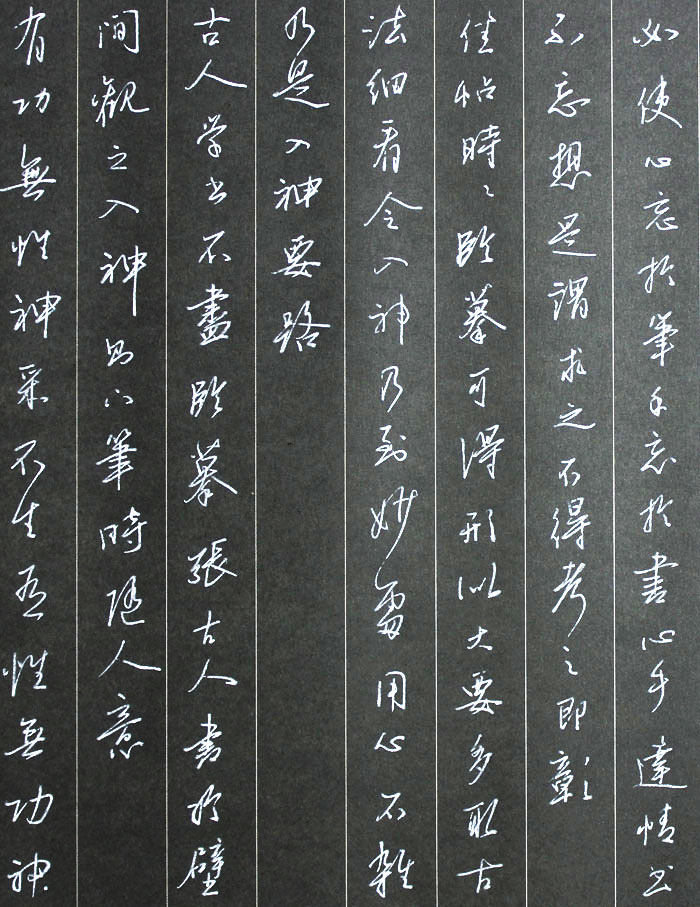 必使心忘於筆手忘於書心手達情书
不忘想是謂求之不得考之即彰
佳帖時〻臨摹可得形似大要多取古
法細看令入神乃到妙處用心不雜
乃是入神要路
古人学书不盡臨摹張古人書於壁
間觀之入神即下筆時随人意
有功無性神采不生有性無功神